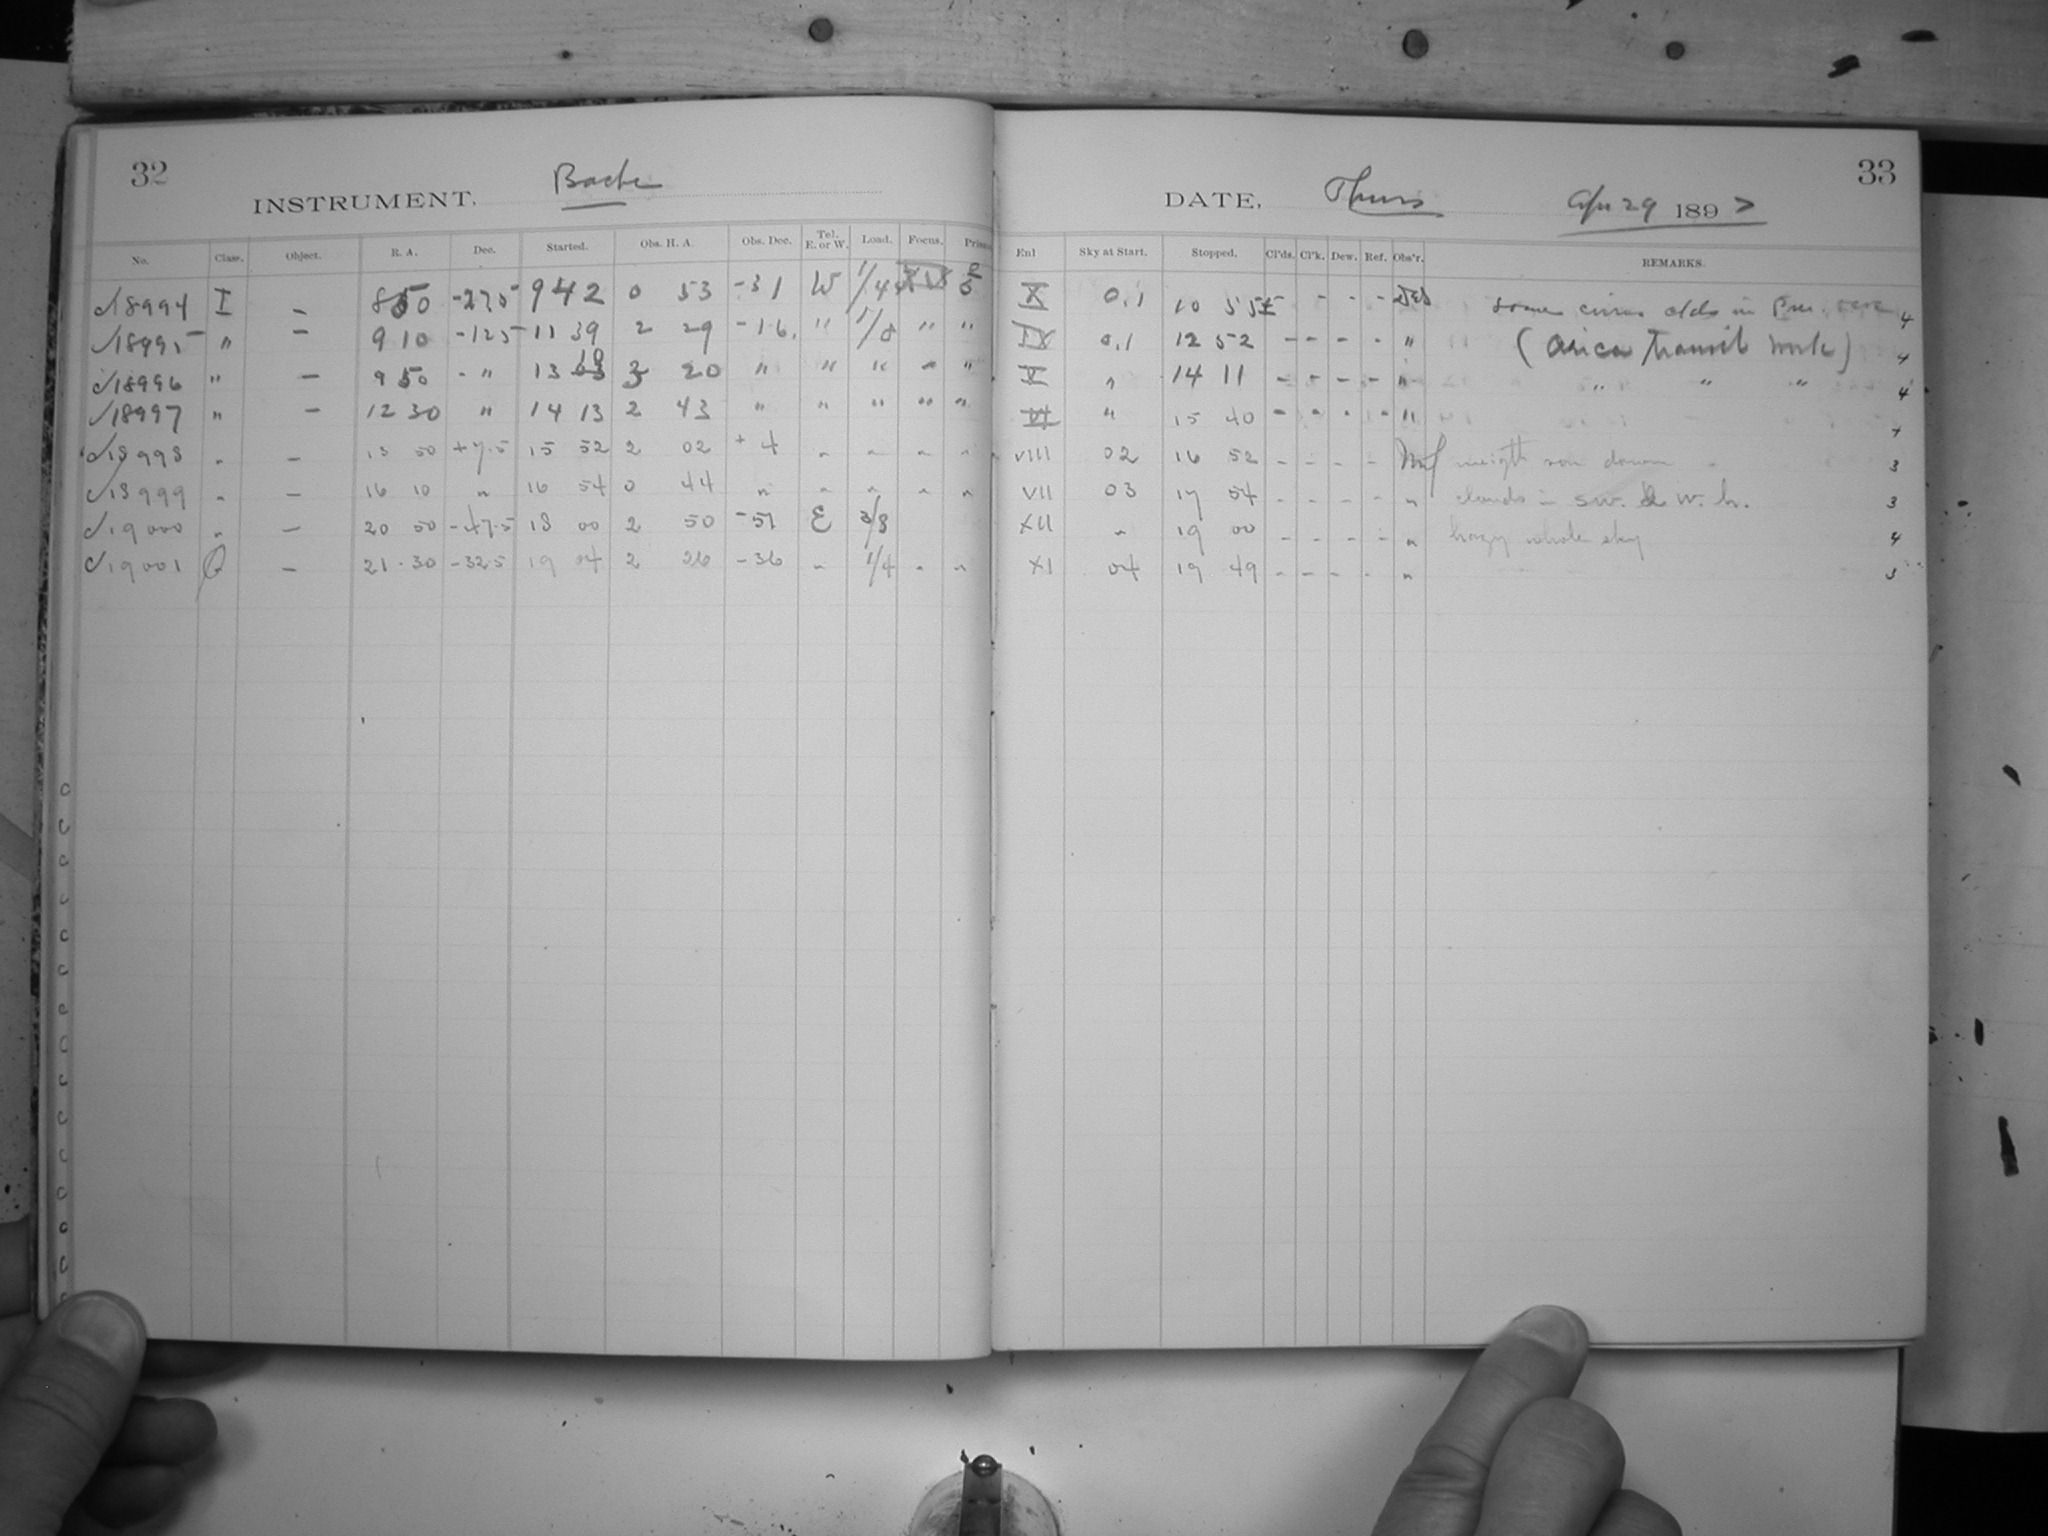 32
INSTRUMENT. Bache
No. Class. Object. R. A. Dec. Started. Obs. H. A. Obs. Dec. Tel. E. or W. Load. Focus.
18994 I - 8 50 -27.5 9 42 0 53 -31 W 1/4
18995 " - 9 10 -12.5 11 39 2 29 -16. " 1/8 " "
18996 " - 9 50 - " 13 20 " " " " "
18997 " - 12 30 " 14 13 2 43 " " " " "
18998 " - 13 50 +7.5 15 52 2 02 + 4 " " " "
18999 " - 16 10 " 16 54 0 44 " " " " "
19000 " - 20 50 -47.5 18 00 2 50 -51 E 3/8
19001 - 21.30 -32.5 19 04 2 26 -36 " 1/4 " "
33
DATE, Thurs Apr 29 1897
Enl Sky at Start. Stopped. Cl'ds. Cl'k. Dew. Ref. Obs'r. REMARKS.
X 0.1 10 55 - - - some cirrus clds in 4
IX 0.1 12 52 - - - - " (Arica transit work) 4
X " 14 11 - - - - " " " " 4
VI " 15 40 - - - - "
VIII 02 16 52 - - - - 3
VII 03 17 54 - - - - " clouds in SW. & W. h. 3
XII " 19 00 - - - - " hazy whole sky 4
XI 04 19 49 - - - - " 3